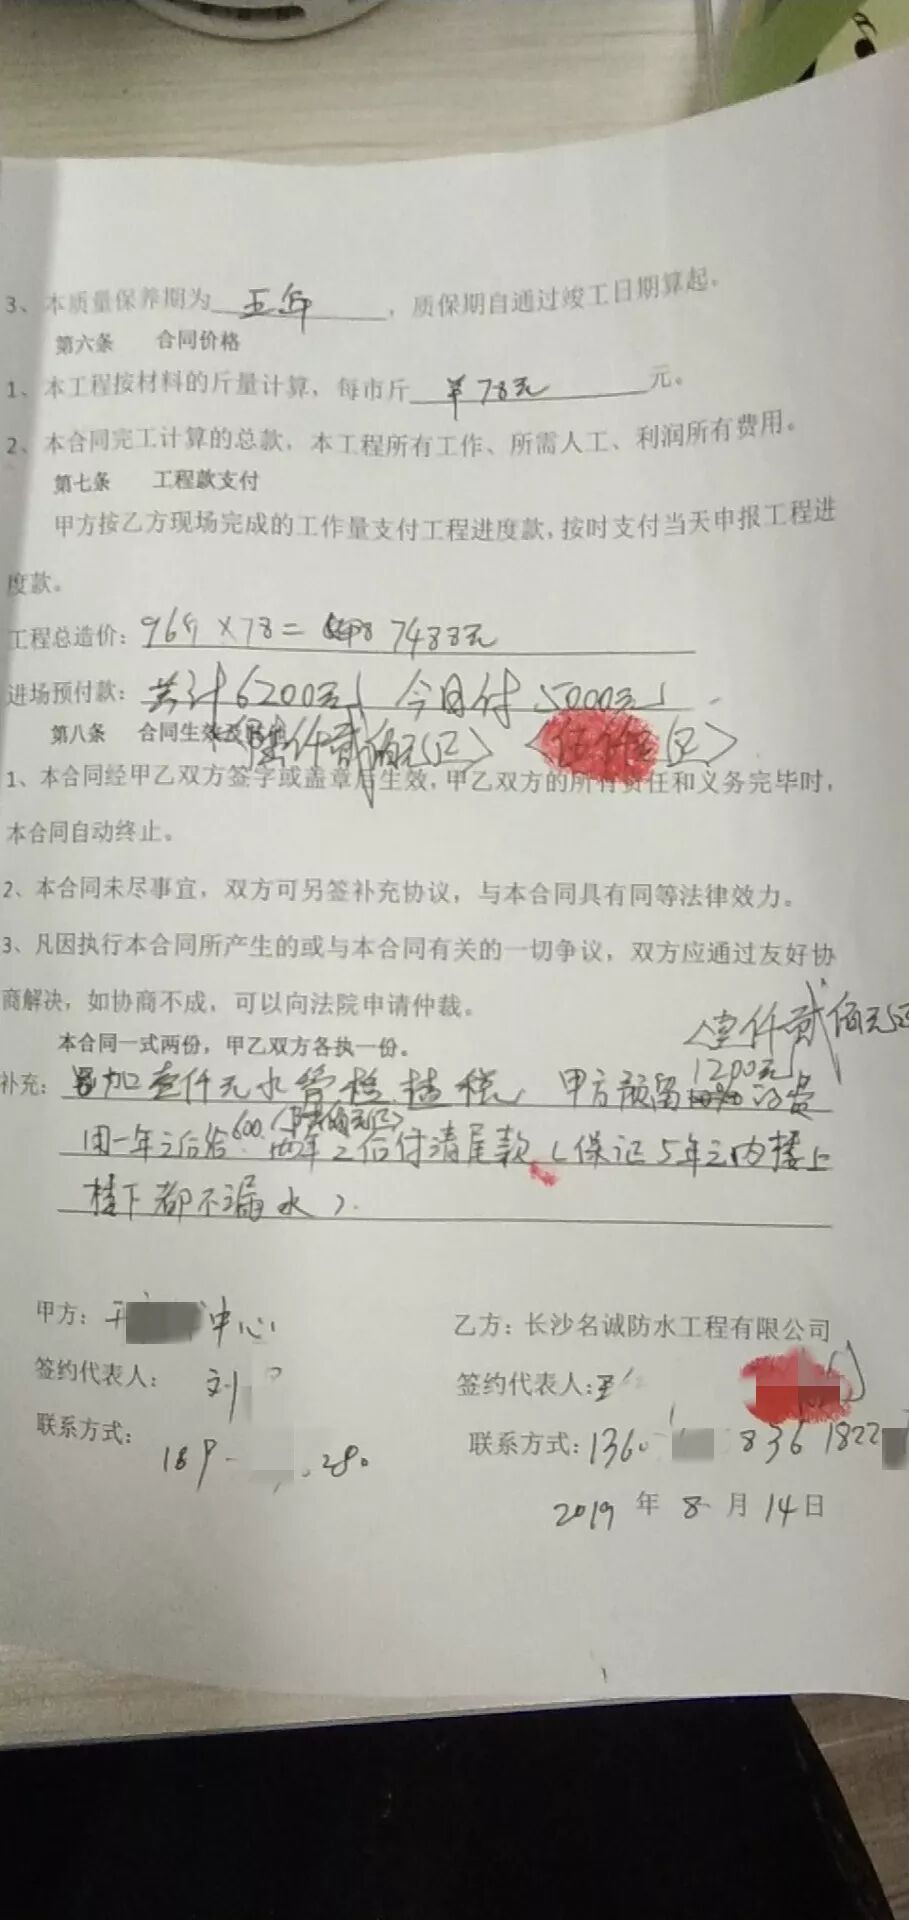 3、本质量保养期为 五年 ，质保期自通过竣工日期算起。
第六条 合同价格
1、本工程按材料的斤量计算，每市斤 ￥78元 元。
2、本合同完工计算的总款，本工程所有工作、所需人工、利润所有费用。
第七条 工程款支付
甲方按乙方现场完成的工作量支付工程进度款，按时支付当天申报工程进
度款。
工程总造价: 96斤×78= 7488元
进场预付款: 共计6200元 今日付5000元
第八条 合同生效及其他
<陆仟贰佰元正> <伍仟元正>
1、本合同经甲乙双方签字或盖章后生效，甲乙双方的所有责任和义务完毕时，
本合同自动终止。
2、本合同未尽事宜，双方可另签补充协议，与本合同具有同等法律效力。
3、凡因执行本合同所产生的或与本合同有关的一切争议，双方应通过友好协
商解决，如协商不成，可以向法院申请仲裁。
<壹仟贰佰元正
本合同一式两份，甲乙双方各执一份。
1200元
补充: 另加壹仟元水管检 甲方预留 的费
用一年之后给600 两年之后付清尾款（保证5年之内楼上
楼下都不漏水）.
甲方: 中心
乙方: 长沙名诚防水工程有限公司
签约代表人: 刘
签约代表人:
联系方式: 189 280
联系方式: 136 836 1822
2019 年 8 月 14日